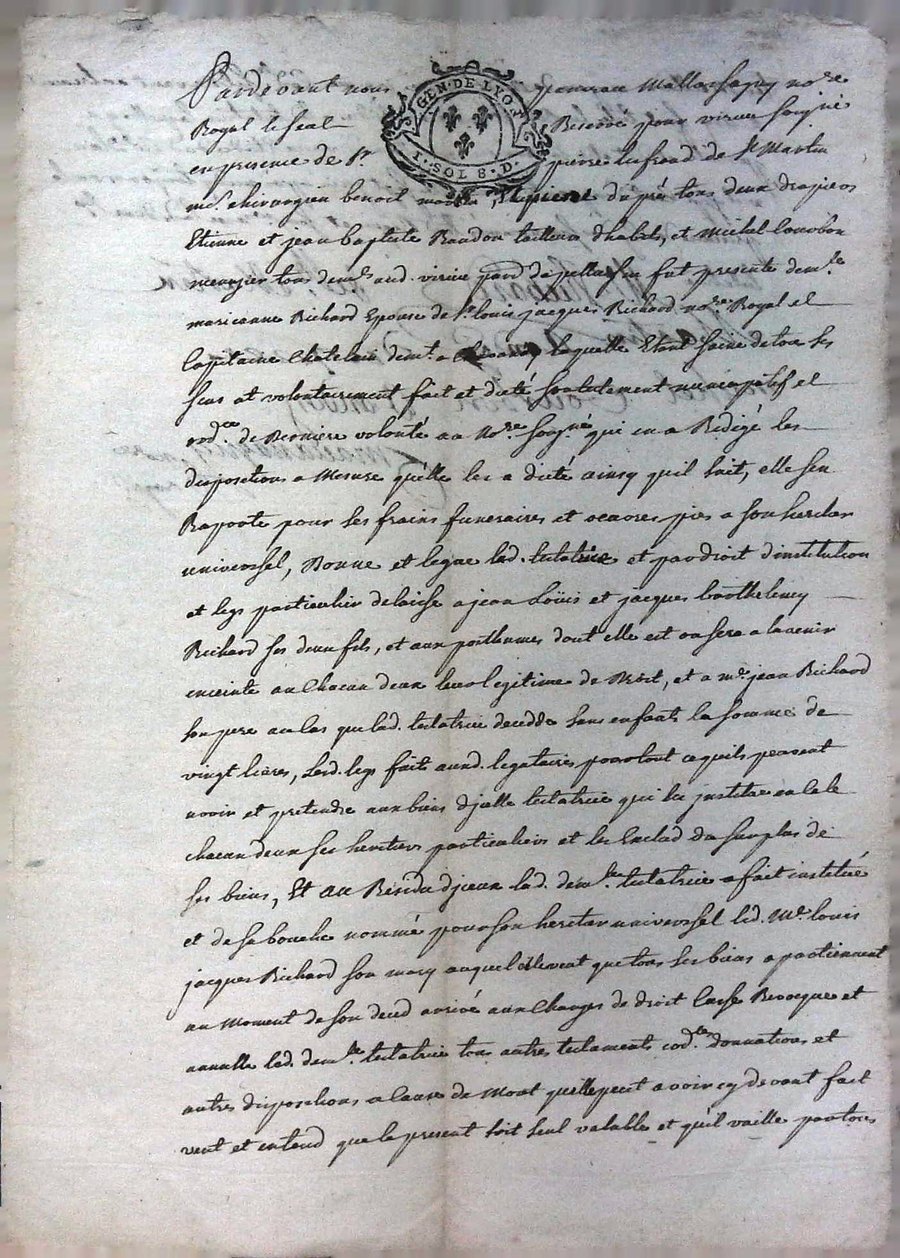 GEN · DE LYON
1 · SOL 8 · D ·
Pardevant nous no.re
Royal le seal Reservé pour virieu soigné
en presence de Sr pierre de St Martin
me chirurgien benoit et pierre dupré tous deux drapiers
Etienne et jean baptiste Baudon tailleurs dhabits, et Michel
tous demts aud. virieu fut presente demlle
marieanne Richard Epouse de Sr louis jacques Richard nore Royal et
Capitaine Chatelain demt a laquelle Etant saine de tous ses
sens at volontairement fait et dicté son testament nuncupatif et
codce de Derniere volonté au Nore soigné qui en a Redigé les
dispositions a Mesure quelle les a dicté ainsy quil suit, elle sen
Raporte pour ses frains funeraires et oeuvres pies a son heritier
universel, Donne et legue lad. testatrice et par droit d'institution
et legs particulier delaisse a jean Loüis et jacques barthelemy
Richard ses deux fils, et aux posthumes dont elle est ou sera a lavenir
enceinte au Chacun deux leur legitime de Droit, et a me jean Richard
son pere au cas que lad. testatrice decedde sans enfants la somme de
vingt livres, lesd. legs fait auxd. legataires pour tout ce quils peuvent
avoir et pretendre aux biens djcelle testatrice qui les jnstitue en ce le
chacun deux ses heritiers particuliers et les Exclud du surplus de
ses biens, Et au Residu djceux lad. demlle testatrice a fait institué
et de sa bouche nommé pour son heritier universel led. Me louis
jacques Richard son mary auquel elle veut que tous ses biens apartiennent
au Moment de son deced arrivé aux Charges de droit Casse Revocque et
annulle lad. demlle testatrice tous autres testaments codlles donnations et
autres dispositions a Cause de Mort quelle peut avoir cy devant fait
veut et entend que le present soit seul valable et qu'il vaille par tous